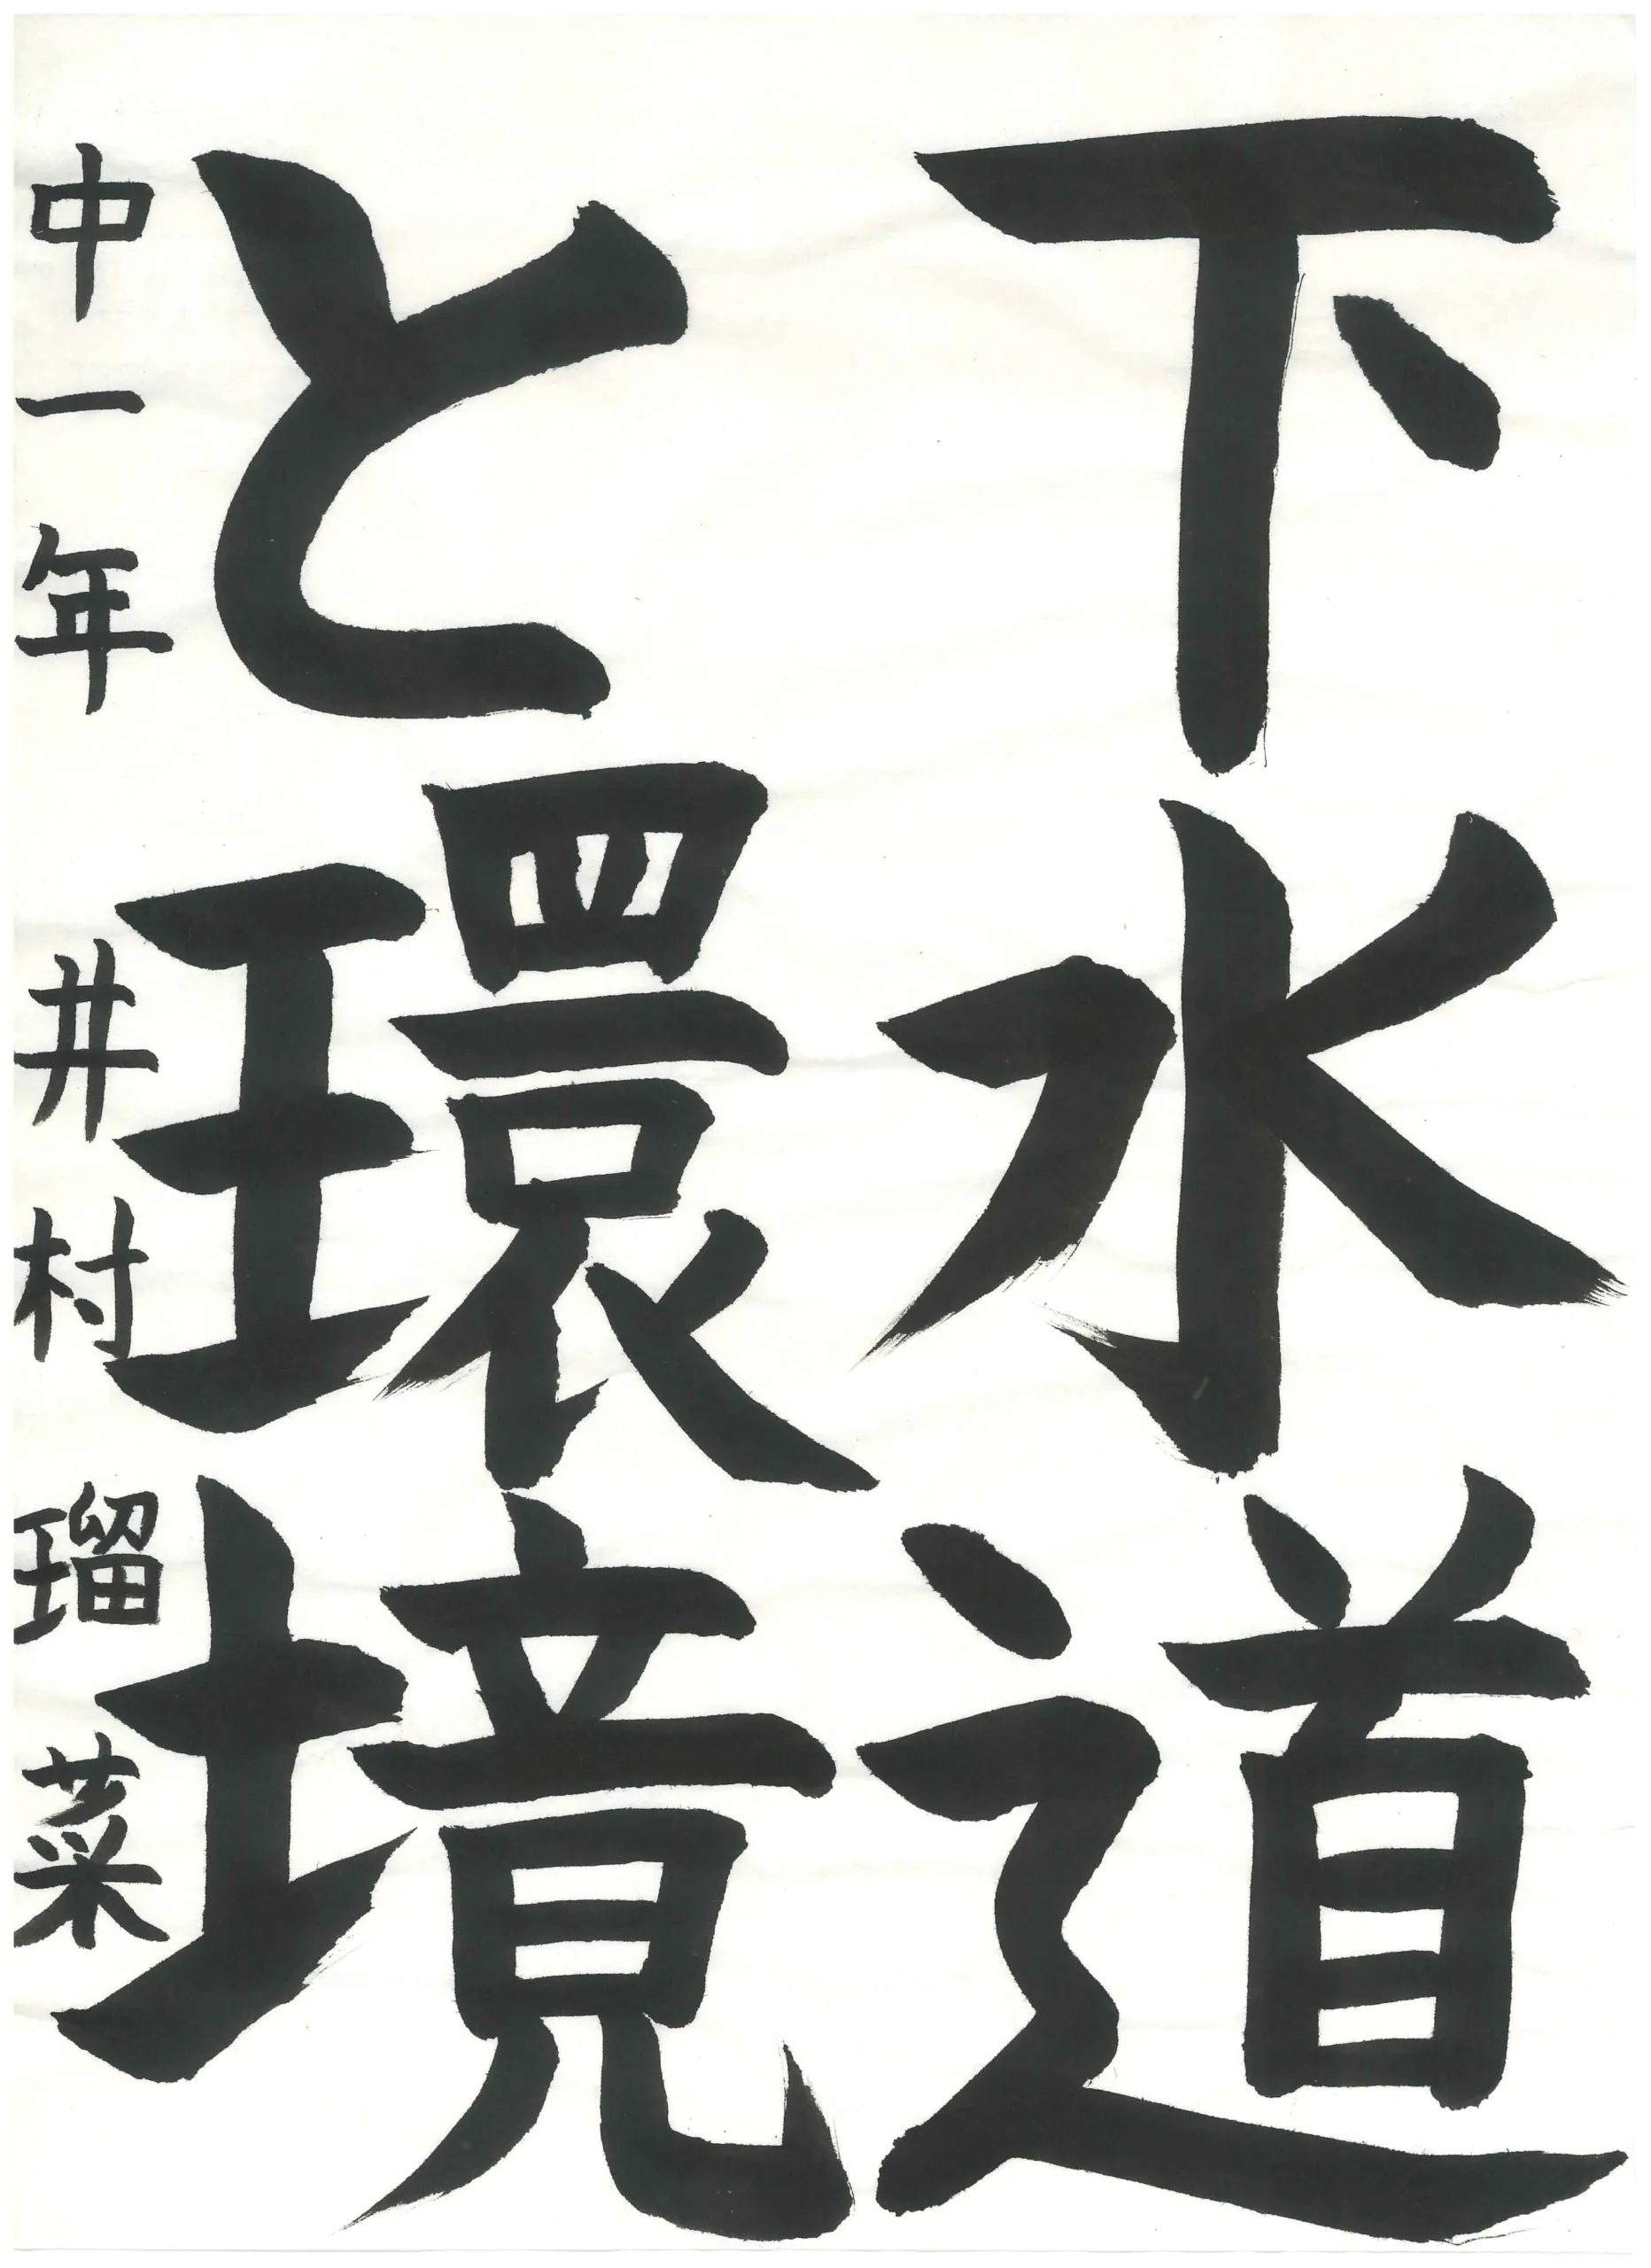 下水道
と環境
中一年 井村瑠菜